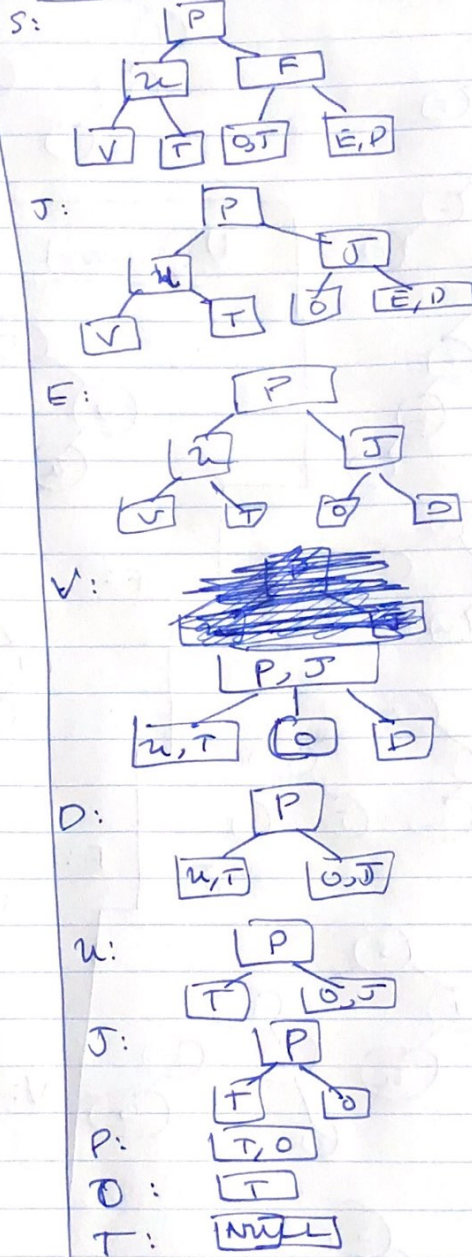 S: P
u F
V T O,J E,D
J: P
u J
V T O E,D
E: P
u J
V T O D
V:
P, J
u,T O D
D: P
u,T O,J
u: P
T O,J
J: P
T O
P: T,O
O: T
T: NULL